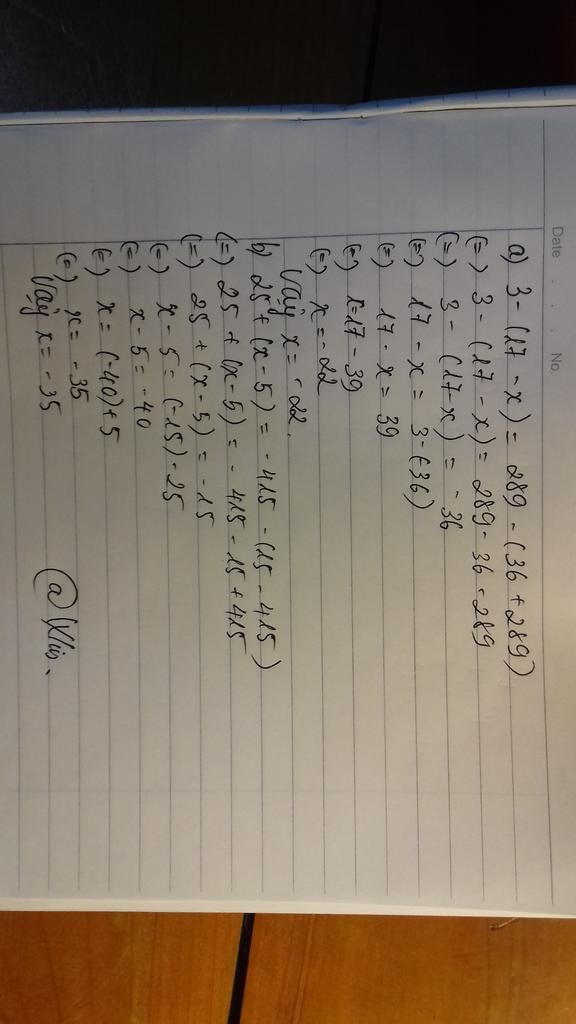 Date . . . No.
a) 3 - (17 - x) = 289 - (36 + 289)
(=) 3 - (17 - x) = 289 - 36 - 289
(=) 3 - (17 - x) = - 36
(=) 17 - x = 3 - (-36)
(=) 17 - x = 39
(=) x = 17 - 39
(=) x = - 22
Vậy x = - 22.
b) 25 + (x - 5) = - 415 - (15 - 415)
(=) 25 + (x - 5) = - 415 - 15 + 415
(=) 25 + (x - 5) = - 15
(=) x - 5 = (-15) - 25
(=) x - 5 = - 40
(=) x = (-40) + 5
(=) x = - 35
Vậy x = - 35